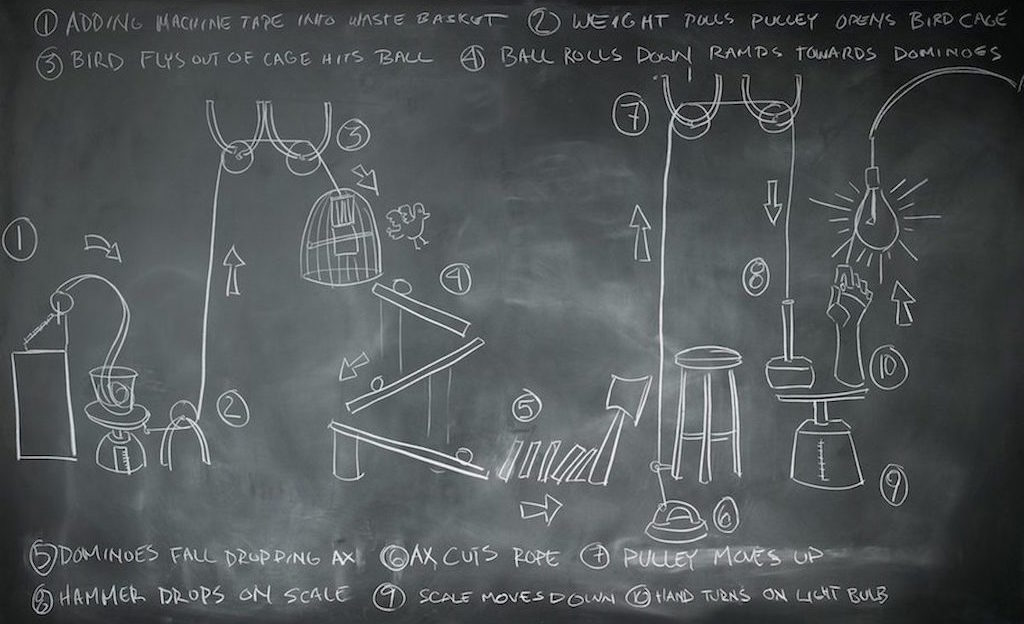 ① ADDING MACHINE TAPE INTO WASTE BASKET ② WEIGHT PULLS PULLEY OPENS BIRD CAGE
③ BIRD FLYS OUT OF CAGE HITS BALL ④ BALL ROLLS DOWN RAMPS TOWARDS DOMINOES
⑦
③
①
④
⑧
⑩
②
⑤
⑨
⑥
⑤ DOMINOES FALL DROPPING AX ⑥ AX CUTS ROPE ⑦ PULLEY MOVES UP
⑧ HAMMER DROPS ON SCALE ⑨ SCALE MOVES DOWN ⑩ HAND TURNS ON LIGHT BULB